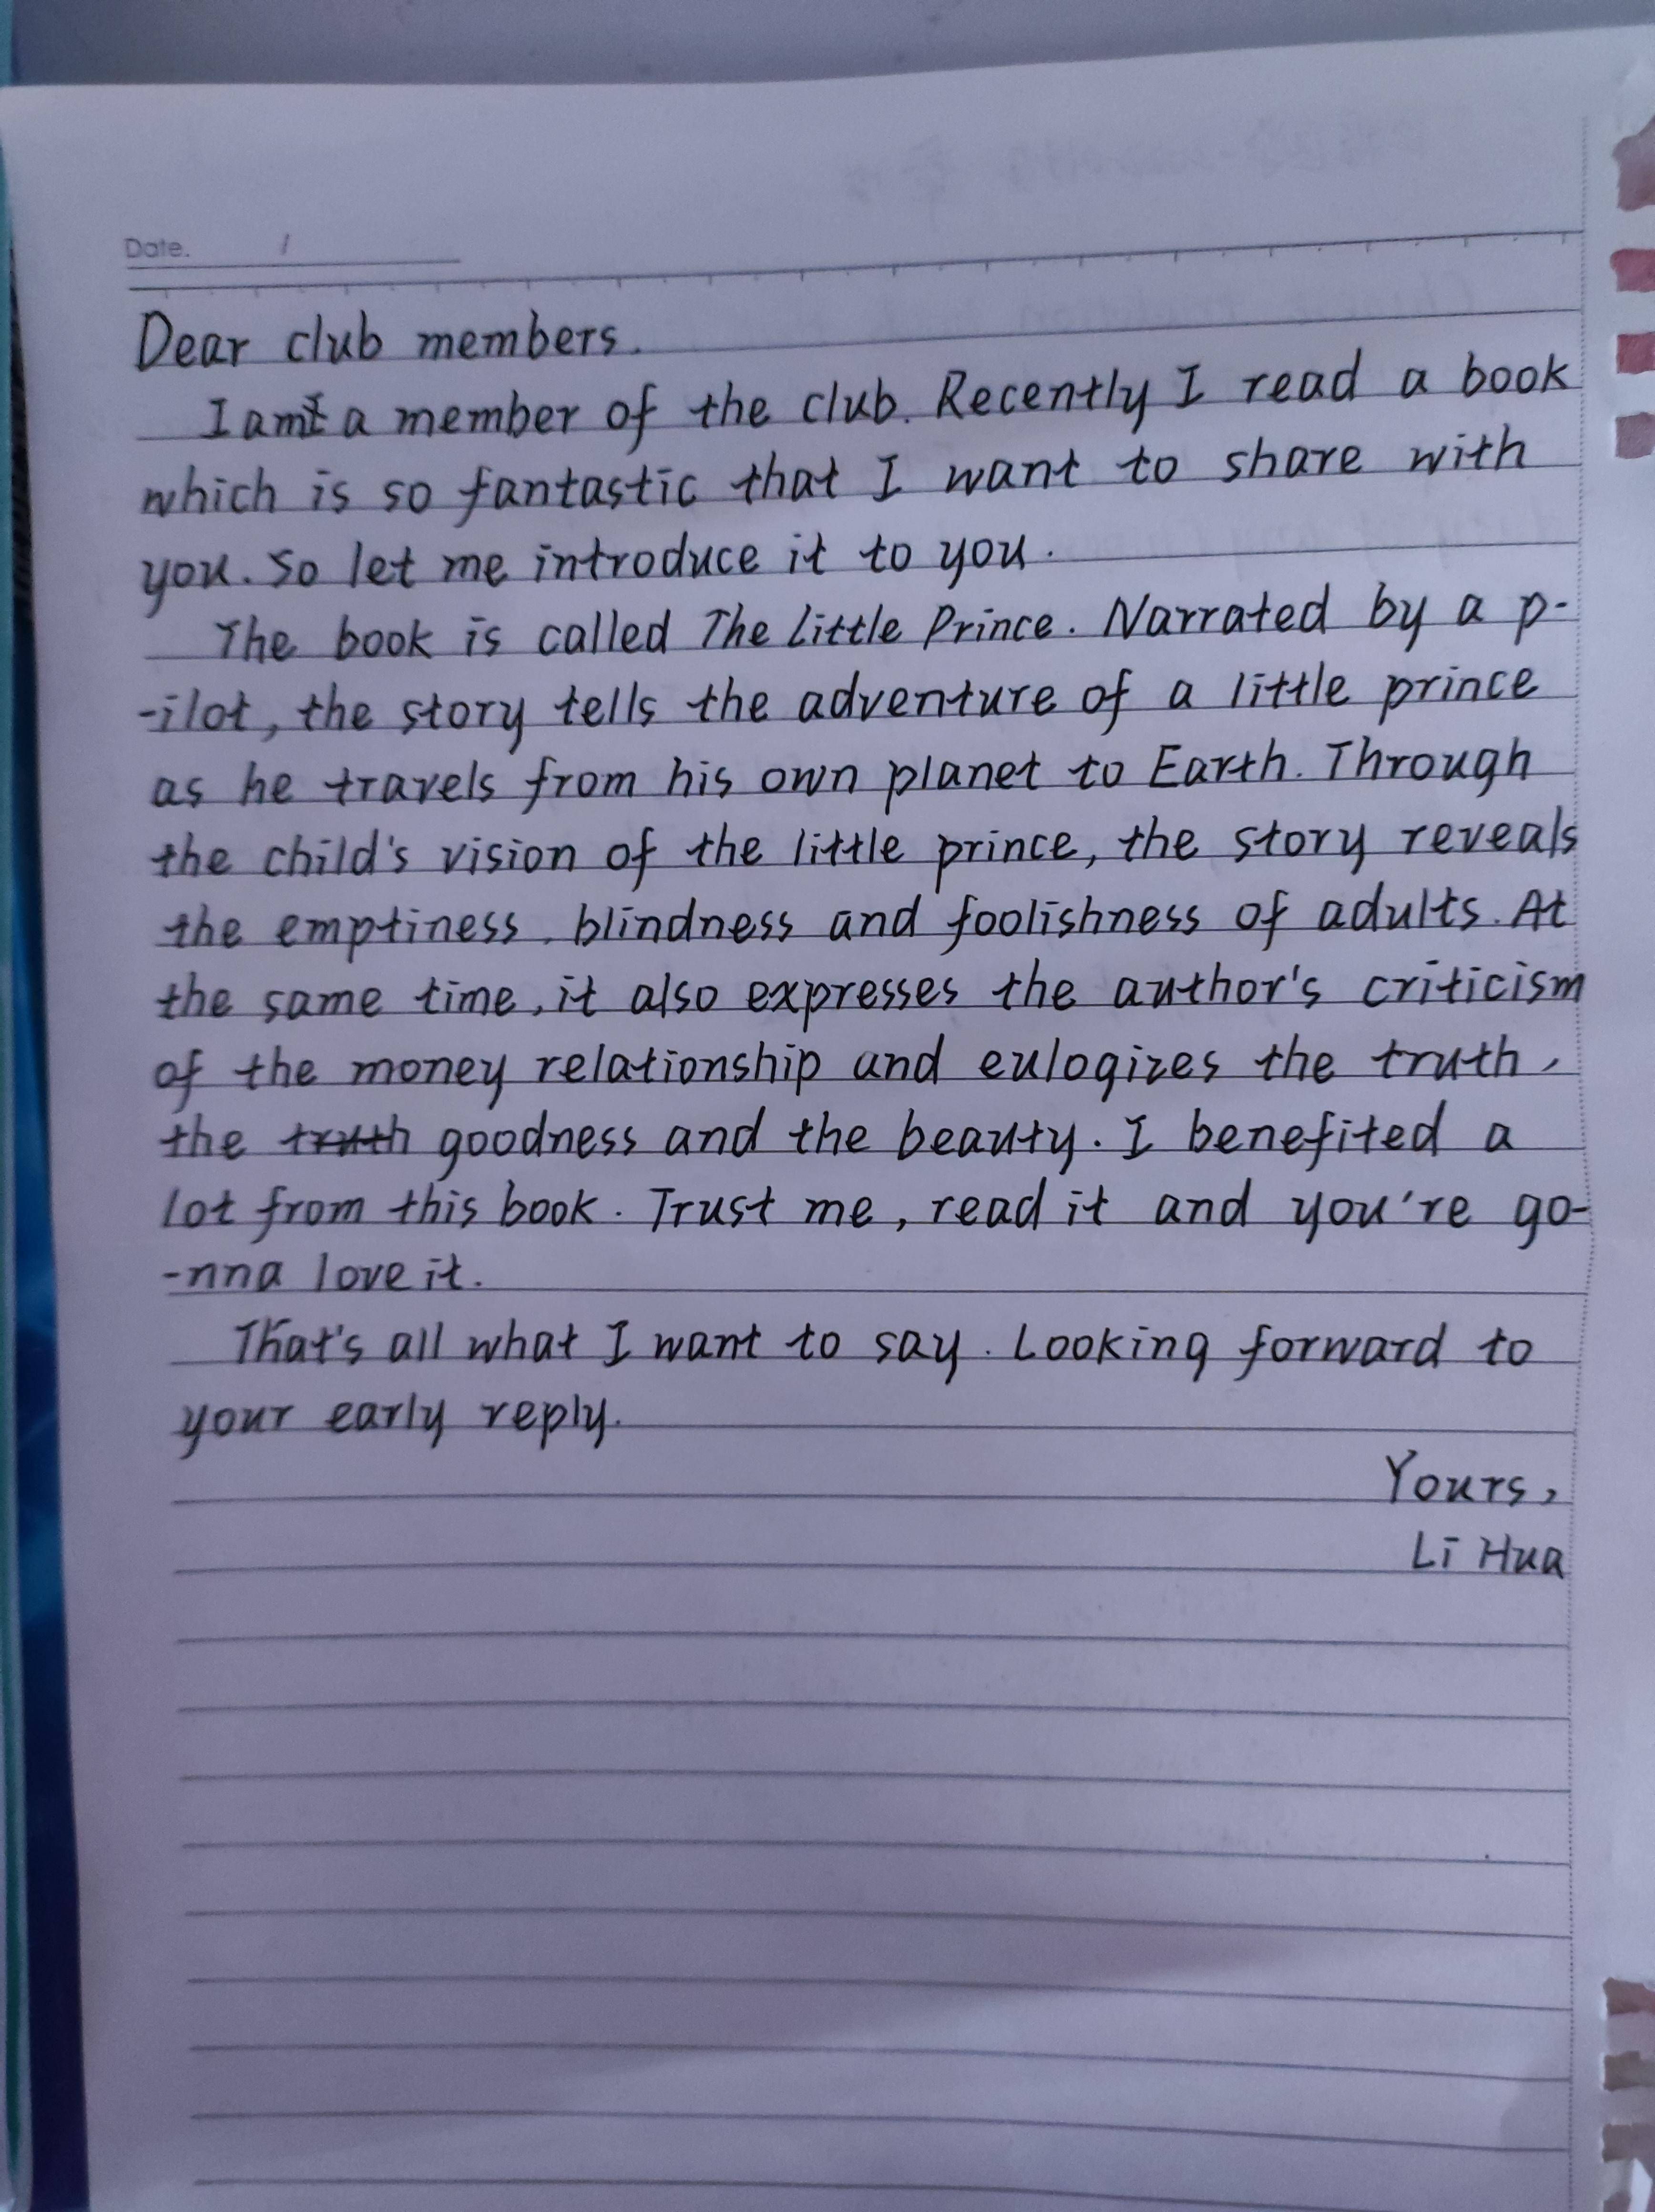 Date. /
Dear club members.
I am a member of the club. Recently I read a book
which is so fantastic that I want to share with
you. So let me introduce it to you.
The book is called The Little Prince. Narrated by a p-
-ilot, the story tells the adventure of a little prince
as he travels from his own planet to Earth. Through
the child's vision of the little prince, the story reveals
the emptiness, blindness and foolishness of adults. At
the same time, it also expresses the author's criticism
of the money relationship and eulogizes the truth,
the truth goodness and the beauty. I benefited a
lot from this book. Trust me, read it and you're go-
-nna love it.
That's all what I want to say. Looking forward to
your early reply.
Yours,
Li Hua